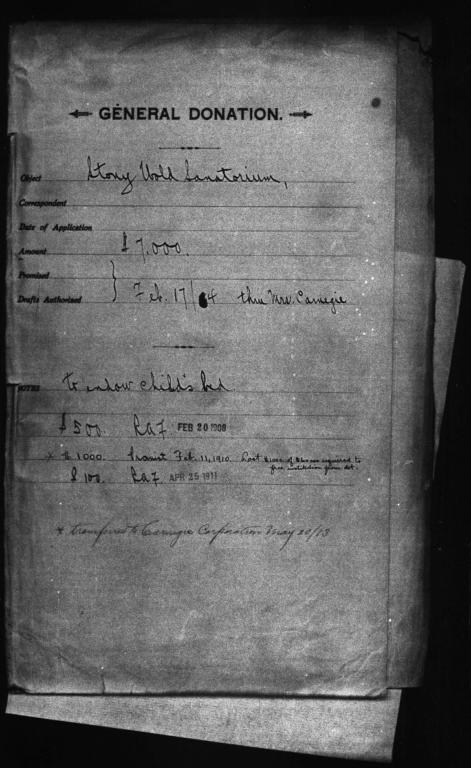 GENERAL DONATION.
Object Stony Wold Sanatorium,
Correspondent
Date of Application
Amount $7,000.
Promised
Drafts Authorised } Feb. 17/04 thru Mrs. Carnegie
NOTES to endow child's bed
$500. RAF FEB 20 1908
* $1000. Promist Feb. 11, 1910. Last $1000 of required to free institution from det.
$100. RAF APR 25 1911
* transferred to Carnegie Corporation May 20/13